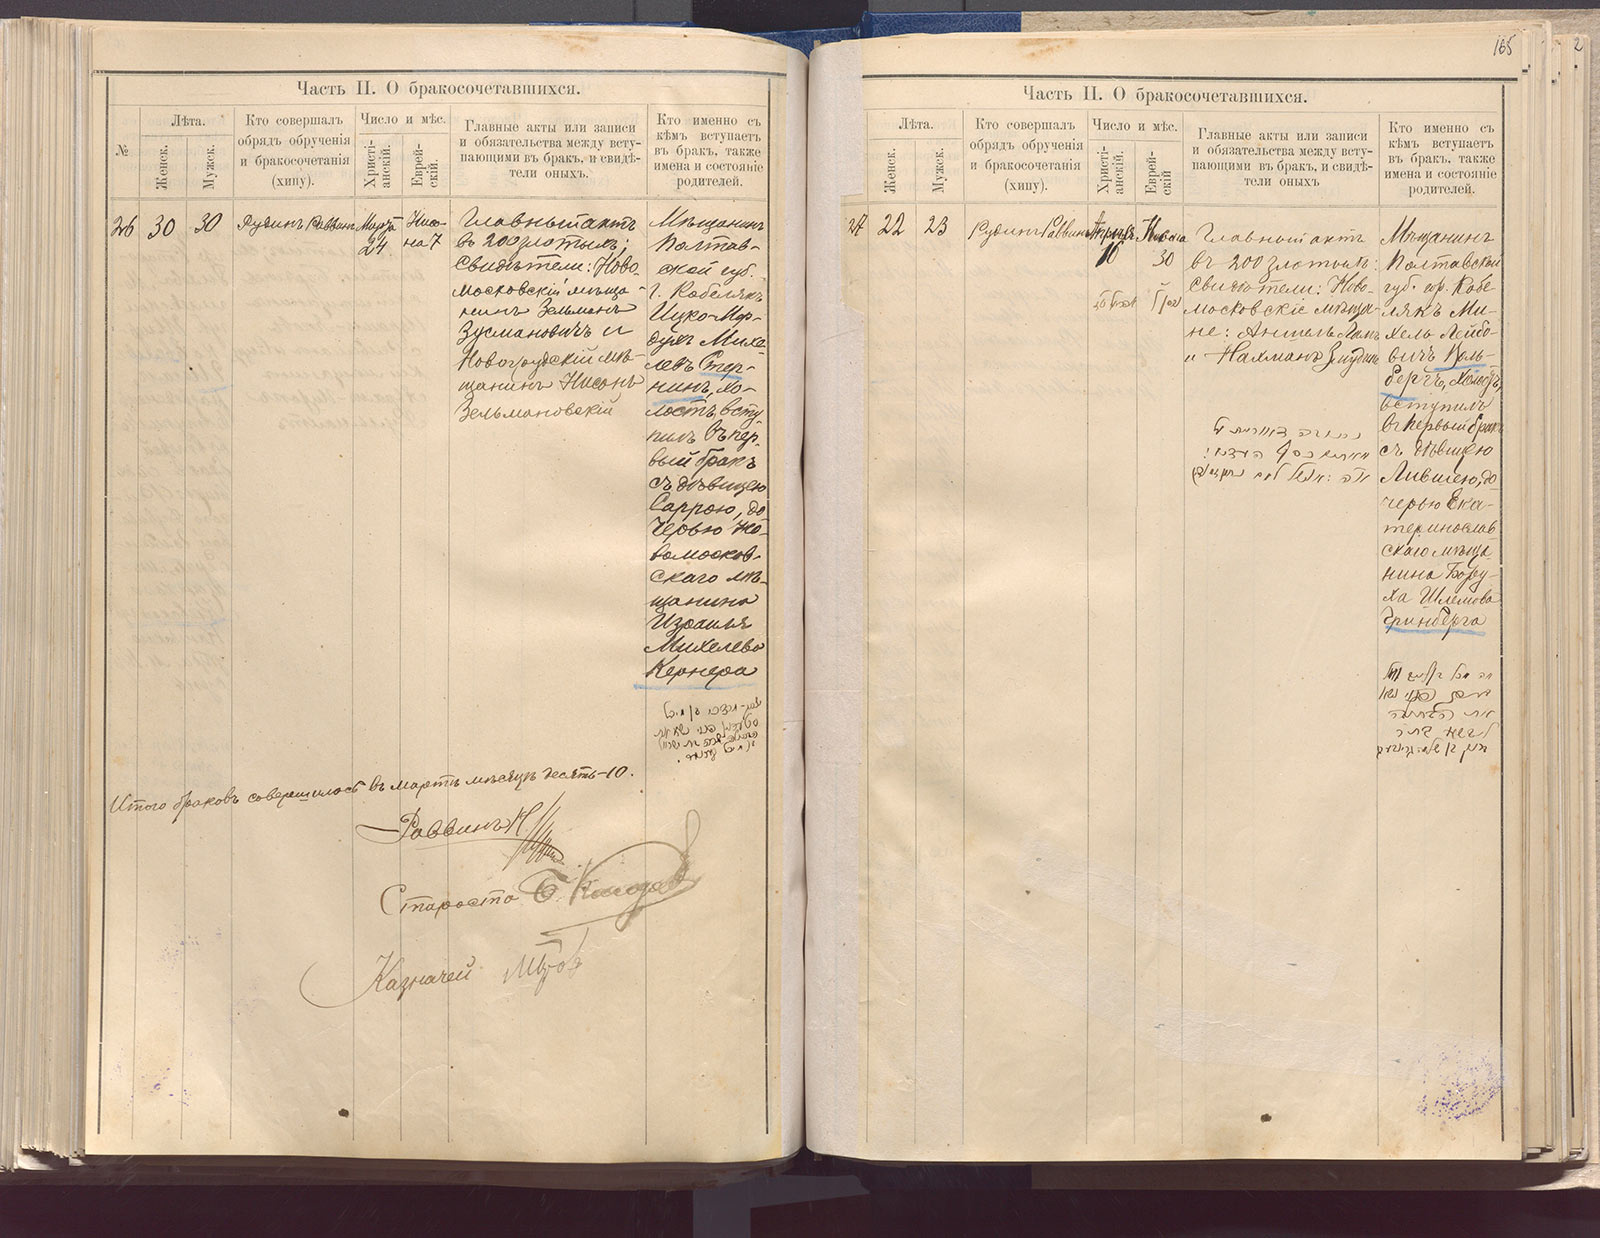 Часть II. О бракосочетавшихся.
№
Лѣта.
Женск.
Мужск.
Кто совершалъ
обрядъ обрученія
и бракосочетанія
(хипу).
Число и мѣс.
Христі-
анскій.
Еврей-
скій.
Главные акты или записи
и обязательства между всту-
пающими въ бракъ, и свидѣ-
тели оныхъ.
Кто именно съ
кѣмъ вступаетъ
въ бракъ, также
имена и состояніе
родителей.
26
30
30
Рудинъ Раввинъ
Марта
24
Ниса-
на 7
Главный актъ
въ 200 злотыхъ;
Свидѣтели: Ново-
московскій мѣща-
нинъ Зельманъ
Зусмановичъ и
Новогрудскій мѣ-
щанинъ Нисонъ
Зельмановскій
Мѣщанинъ
Полтав-
ской губ.
г. Кобелякъ
Ицко-Мор-
духъ Михе-
левъ Стер-
нинъ, хо-
лостъ всту
пилъ въ пер-
вый бракъ
съ дѣвицею
Саррою, до
черью Но-
вомосков-
скаго мѣ-
щанина
Израиля
Михелева
Кернера
Итого браковъ совершилось въ мартѣ мѣсяцѣ десять-10.
Раввинъ
Староста Б.
Казначей
165
Часть II. О бракосочетавшихся.
Лѣта.
Женск.
Мужск.
Кто совершалъ
обрядъ обрученія
и бракосочетанія
(хипу).
Число и мѣс.
Христі-
анскій.
Еврей-
скій
Главные акты или записи
и обязательства между всту-
пающими въ бракъ, и свидѣ-
тели оныхъ
Кто именно съ
кѣмъ вступаетъ
въ бракъ, также
имена и состояніе
родителей.
27
22
23
Рудинъ Раввинъ
Апрѣля
16
Нисона
30
Главный актъ
въ 200 злотыхъ:
Свидѣтели: Ново-
московскіе мѣща-
не:
и Нахманъ
Мѣщанинъ
Полтавской
губ. гор. Кобе-
лякъ Ми-
хель Лейбо-
вичъ Коль-
беръ, холостъ,
вступилъ
въ первый бракъ
съ дѣвицею
Лившею, до
черью Ека-
теринослав
скаго мѣща-
нина Бору-
ха Шлемова
Гринберга